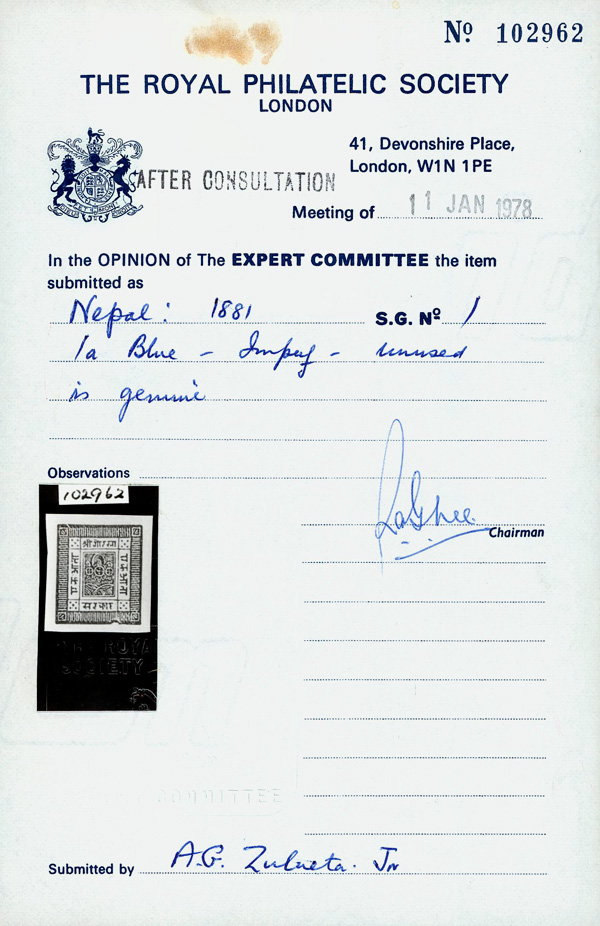 Nº 102962
THE ROYAL PHILATELIC SOCIETY
LONDON
41, Devonshire Place,
London, W1N 1PE
AFTER CONSULTATION
Meeting of 11 JAN 1978
In the OPINION of The EXPERT COMMITTEE the item
submitted as
Nepal: 1881 S.G. Nº 1
1a Blue - Imperf - unused
is genuine
Observations
102962
Chairman
श्री गोरखा
एक आना
एक आना
सरकार
ROYAL
SOCIETY
COMMITTEE
Submitted by A.G. Zulueta. Jr